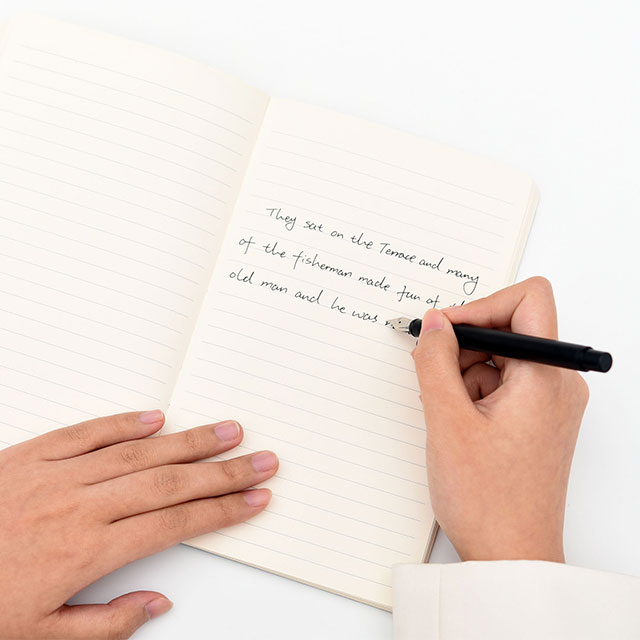 They sat on the Terrace and many
of the fisherman made fun of
old man and he was